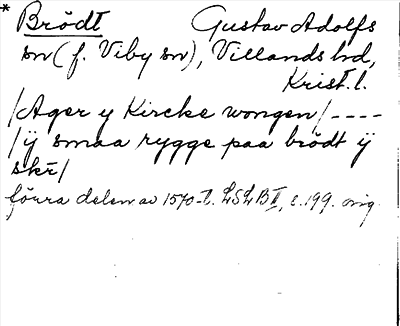 * Brödt Gustav Adolfs
sn (f. Viby sn), Villands hd,
Krist. l.
/Ager y Kircke wongen/ ----
/ÿ smaa rygge paa brödt ÿ
skr/
förra delen av 1570-t. LSLB II, s. 199. orig.